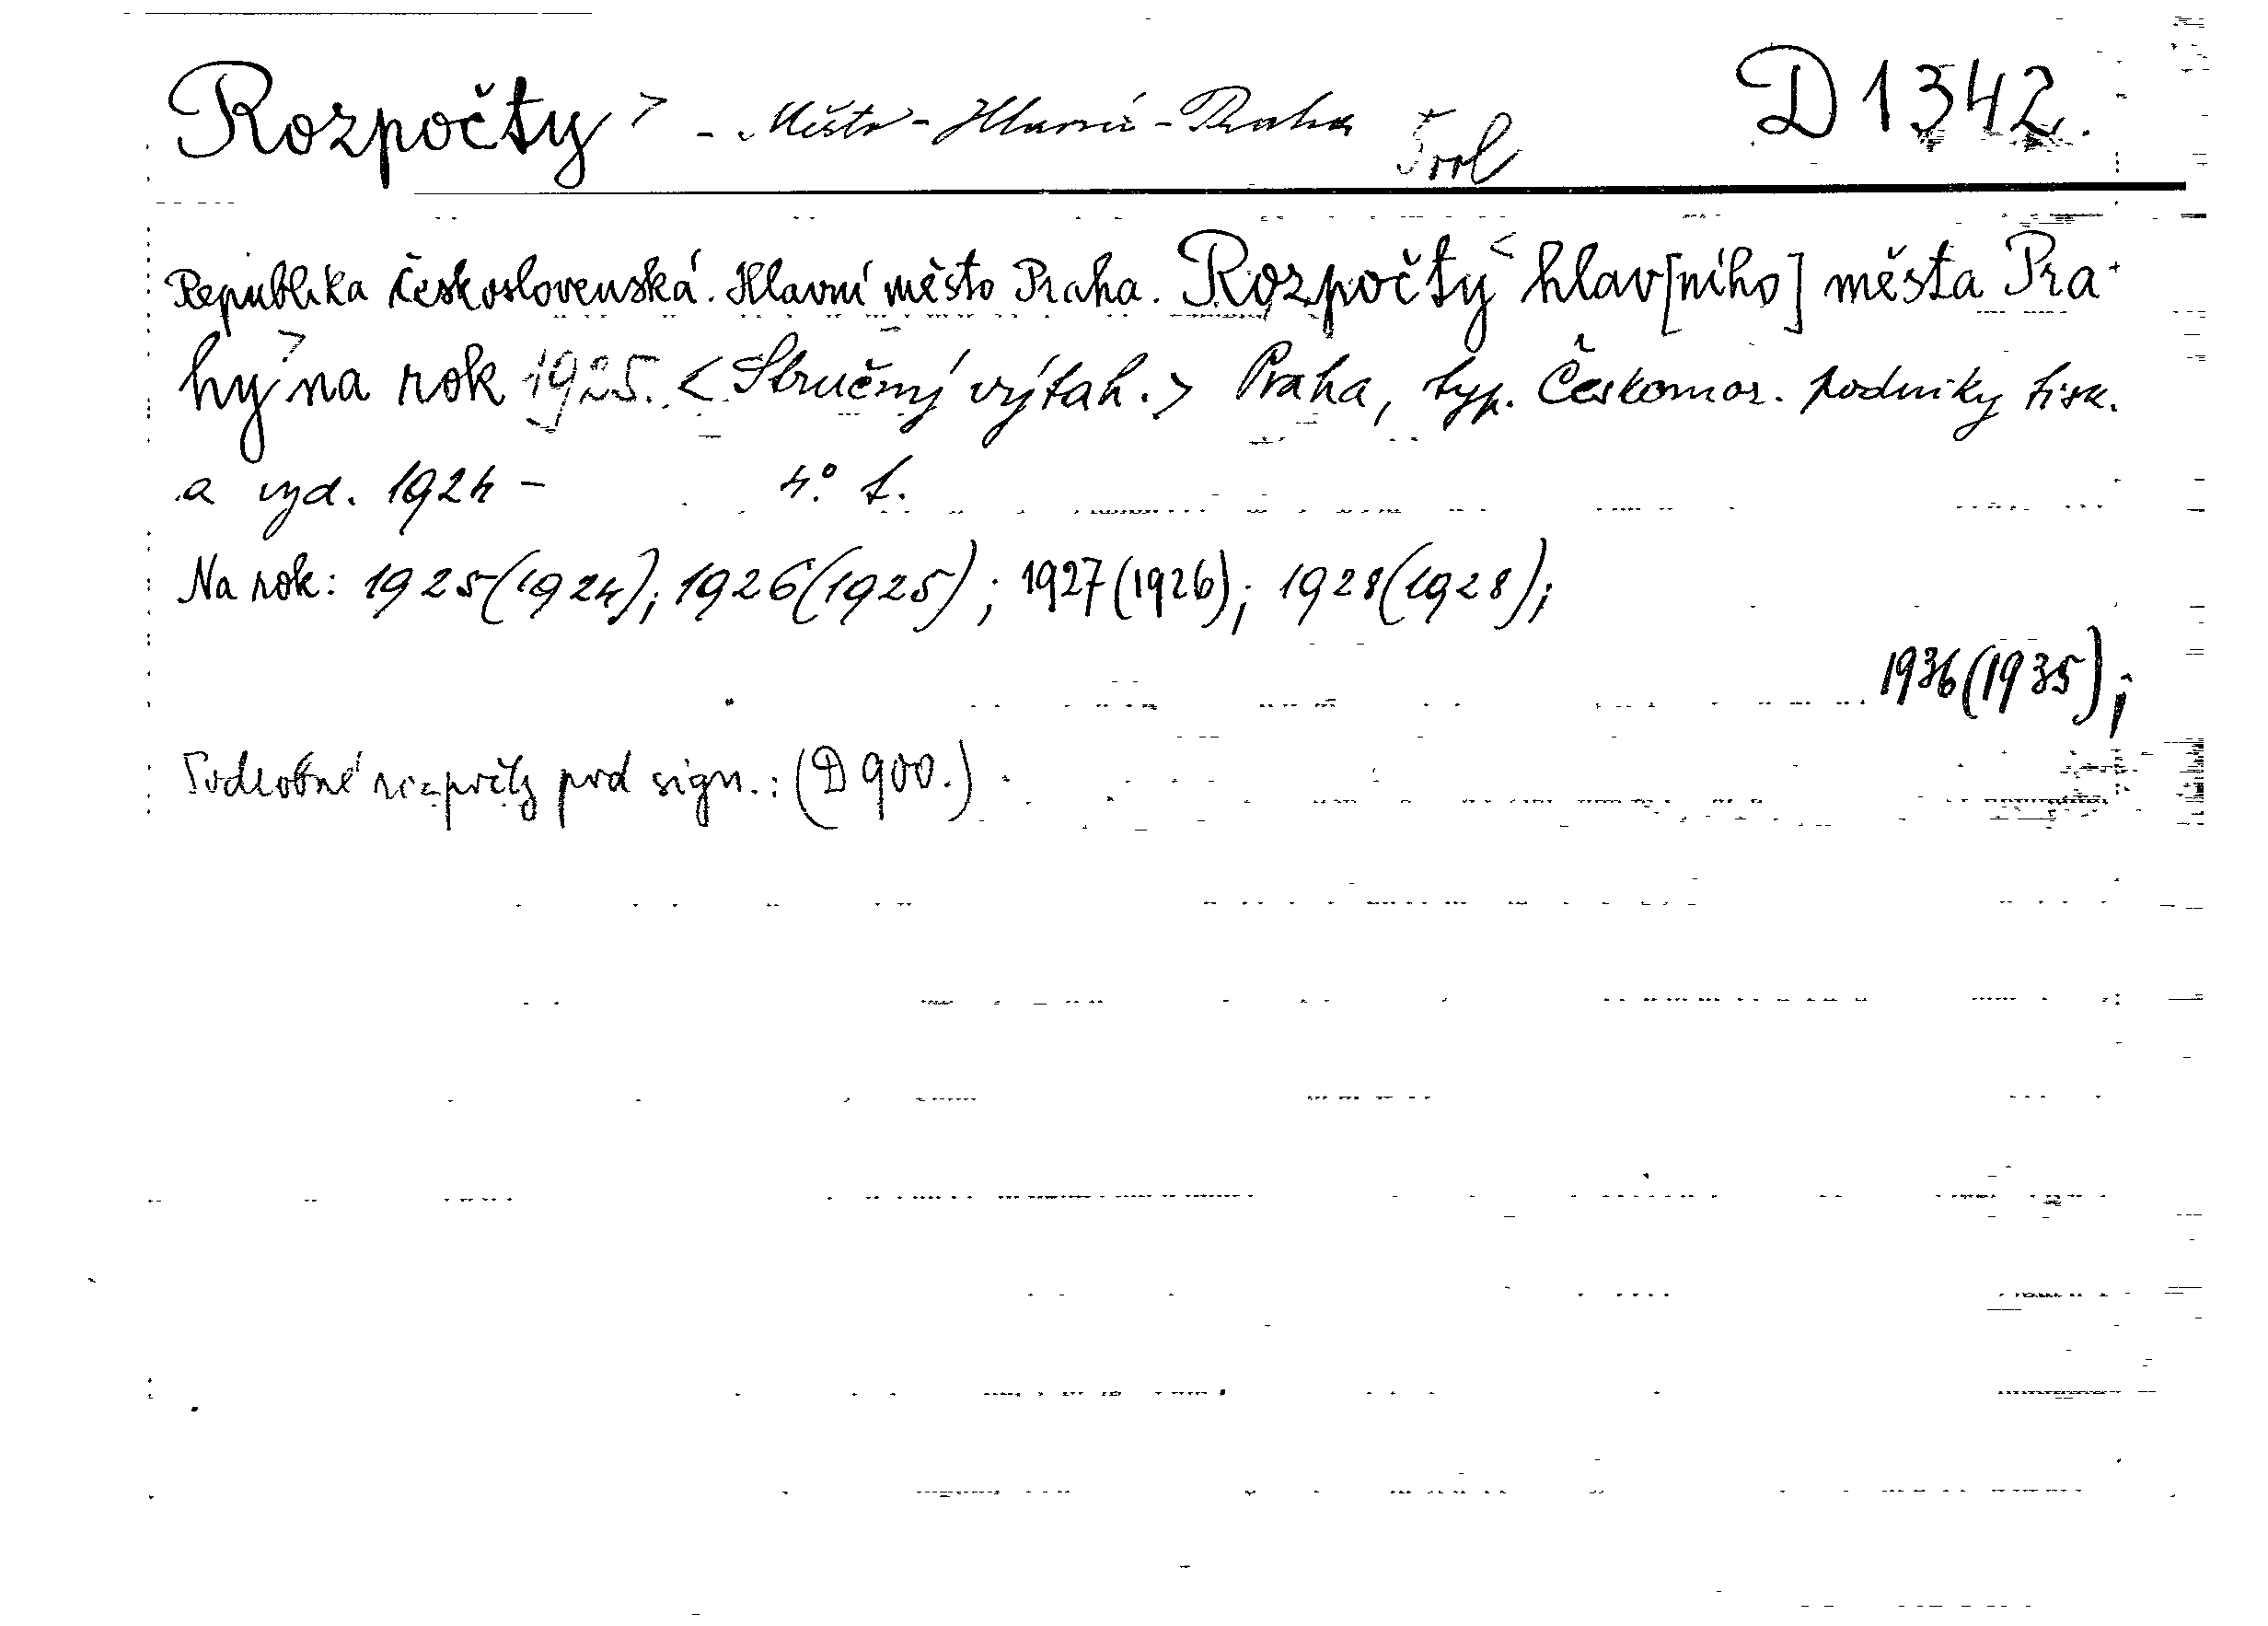 Rozpočty > - Město - Hlavní - Praha 5 vol D 1342.
Republika Československá. Hlavní město Praha. Rozpočty < hlav[ního] města Pra-
hy > na rok 1925. < Stručný výtah. > Praha, typ. Českomor. podniky tisk.
a vyd. 1924 - 4° f.
Na rok: 1925 (1924); 1926 (1925); 1927 (1926); 1928 (1928);
1936 (1935);
Podrobné rozpočty pod sign.: (D 900.)